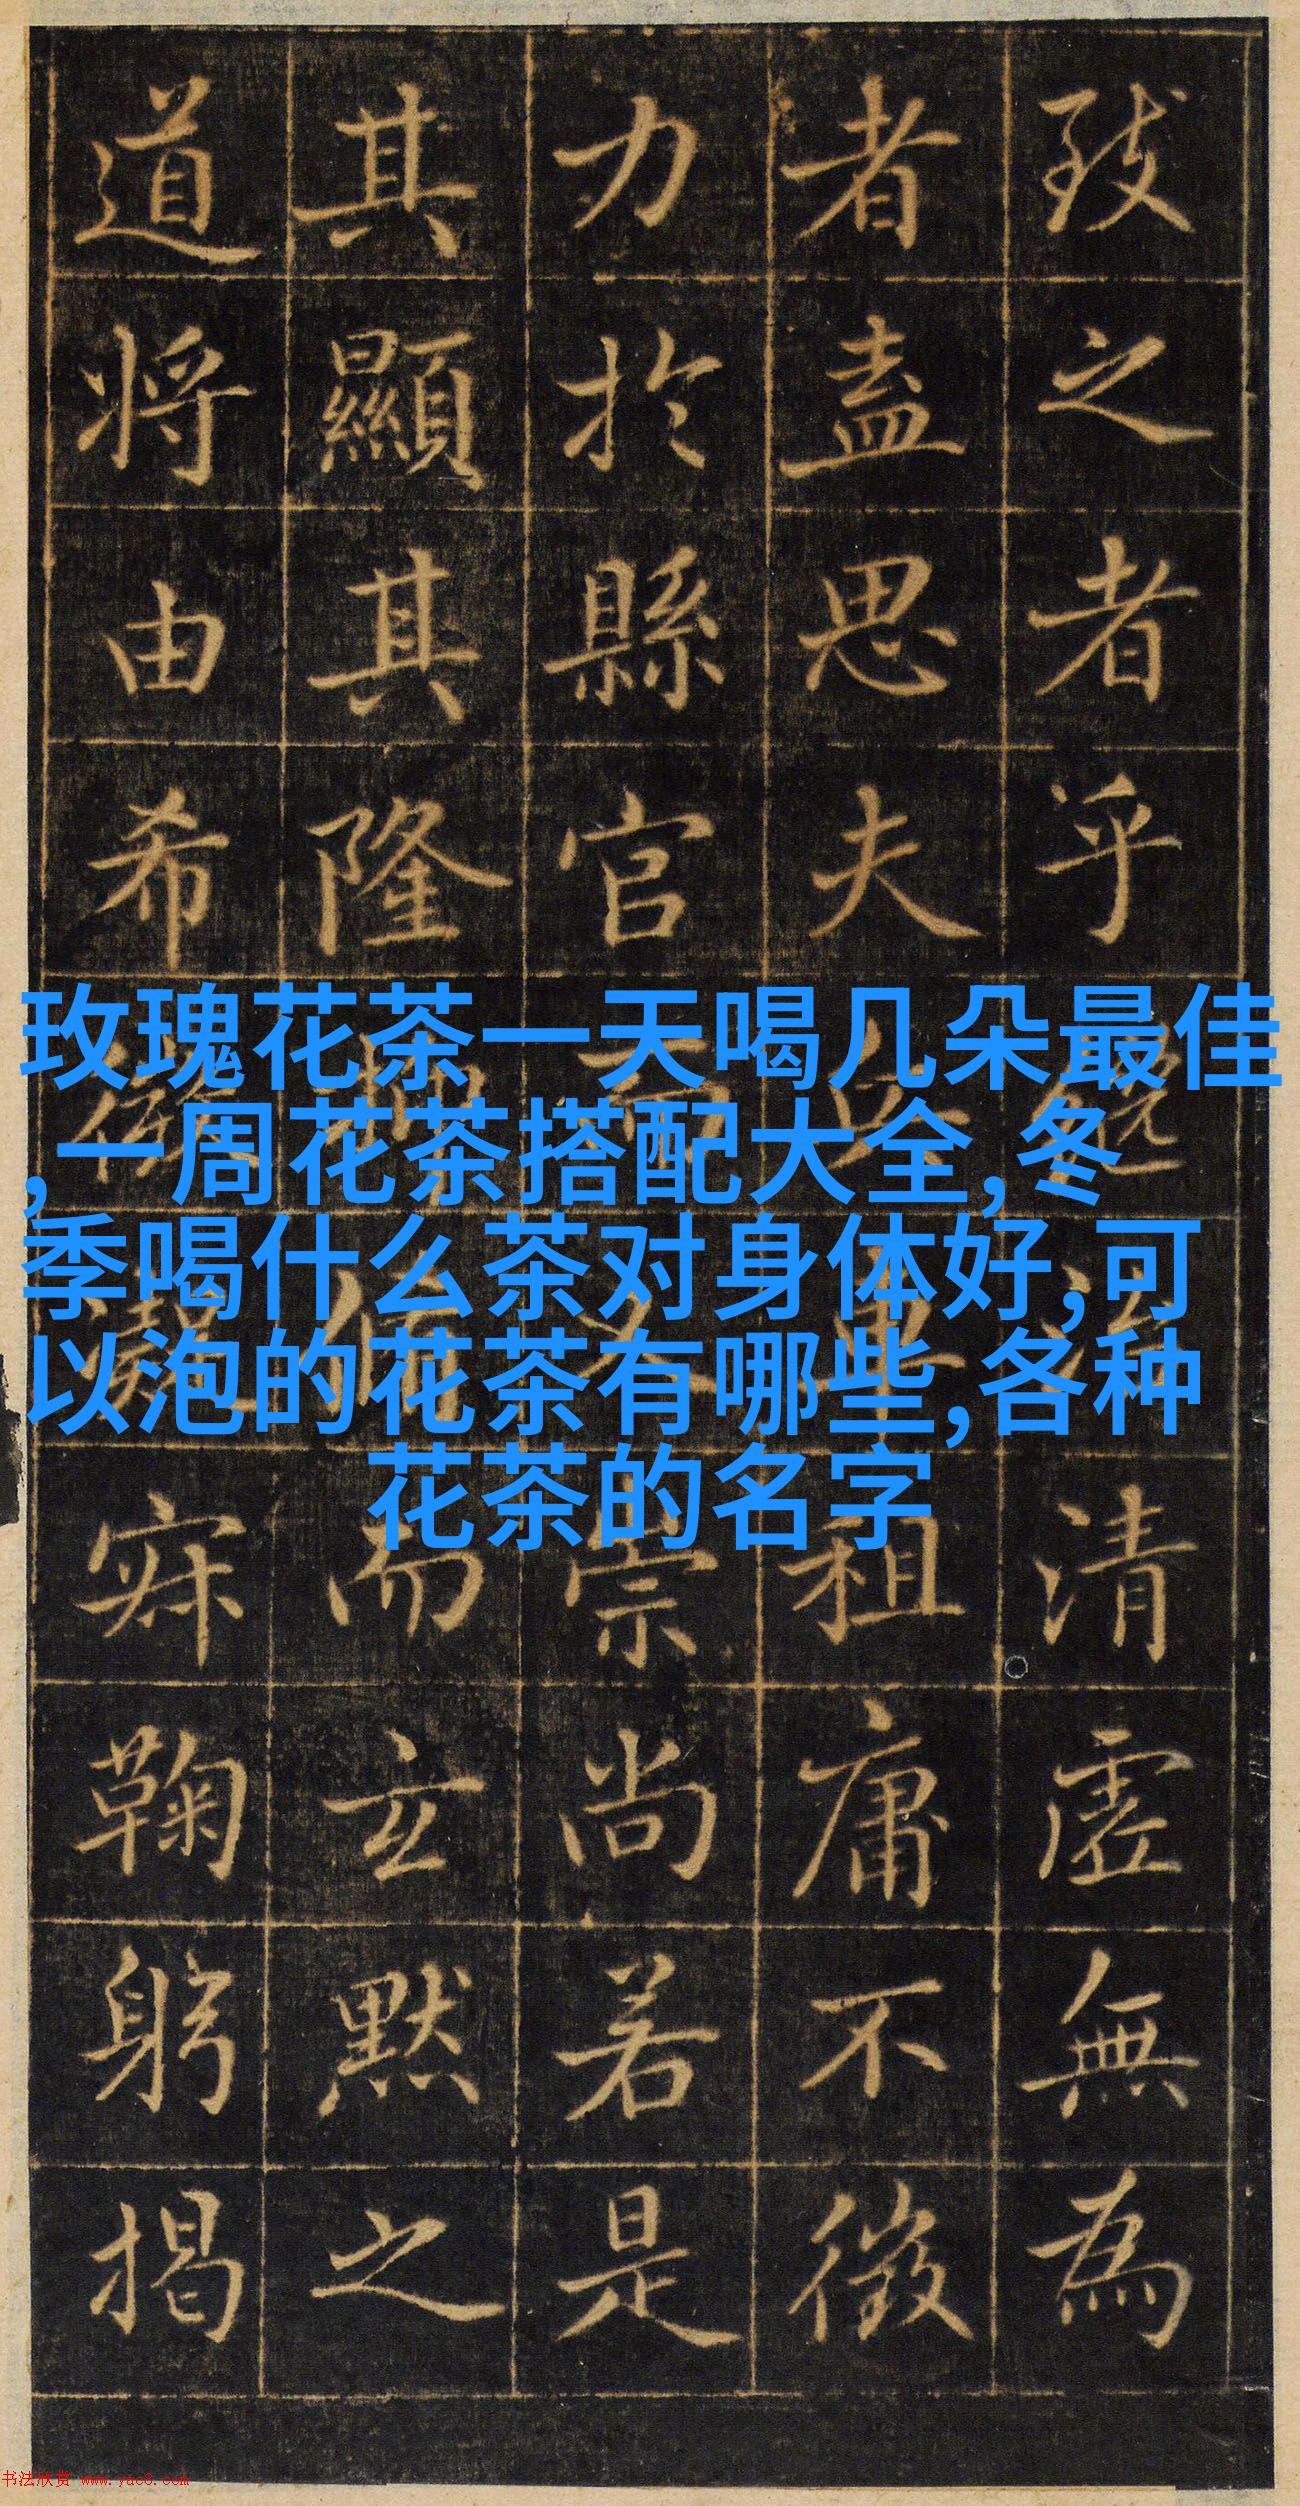 致之者乎清虚無為
者盖思夫租庸不徵
力於縣官崇尚若是
其顯其隆而玄默之
道将由希寂鞠躬揭
玫瑰花茶一天喝几朵最佳
,一周花茶搭配大全,冬
季喝什么茶对身体好,可
以泡的花茶有哪些,各种
花茶的名字
书法欣赏 www.yac8.com